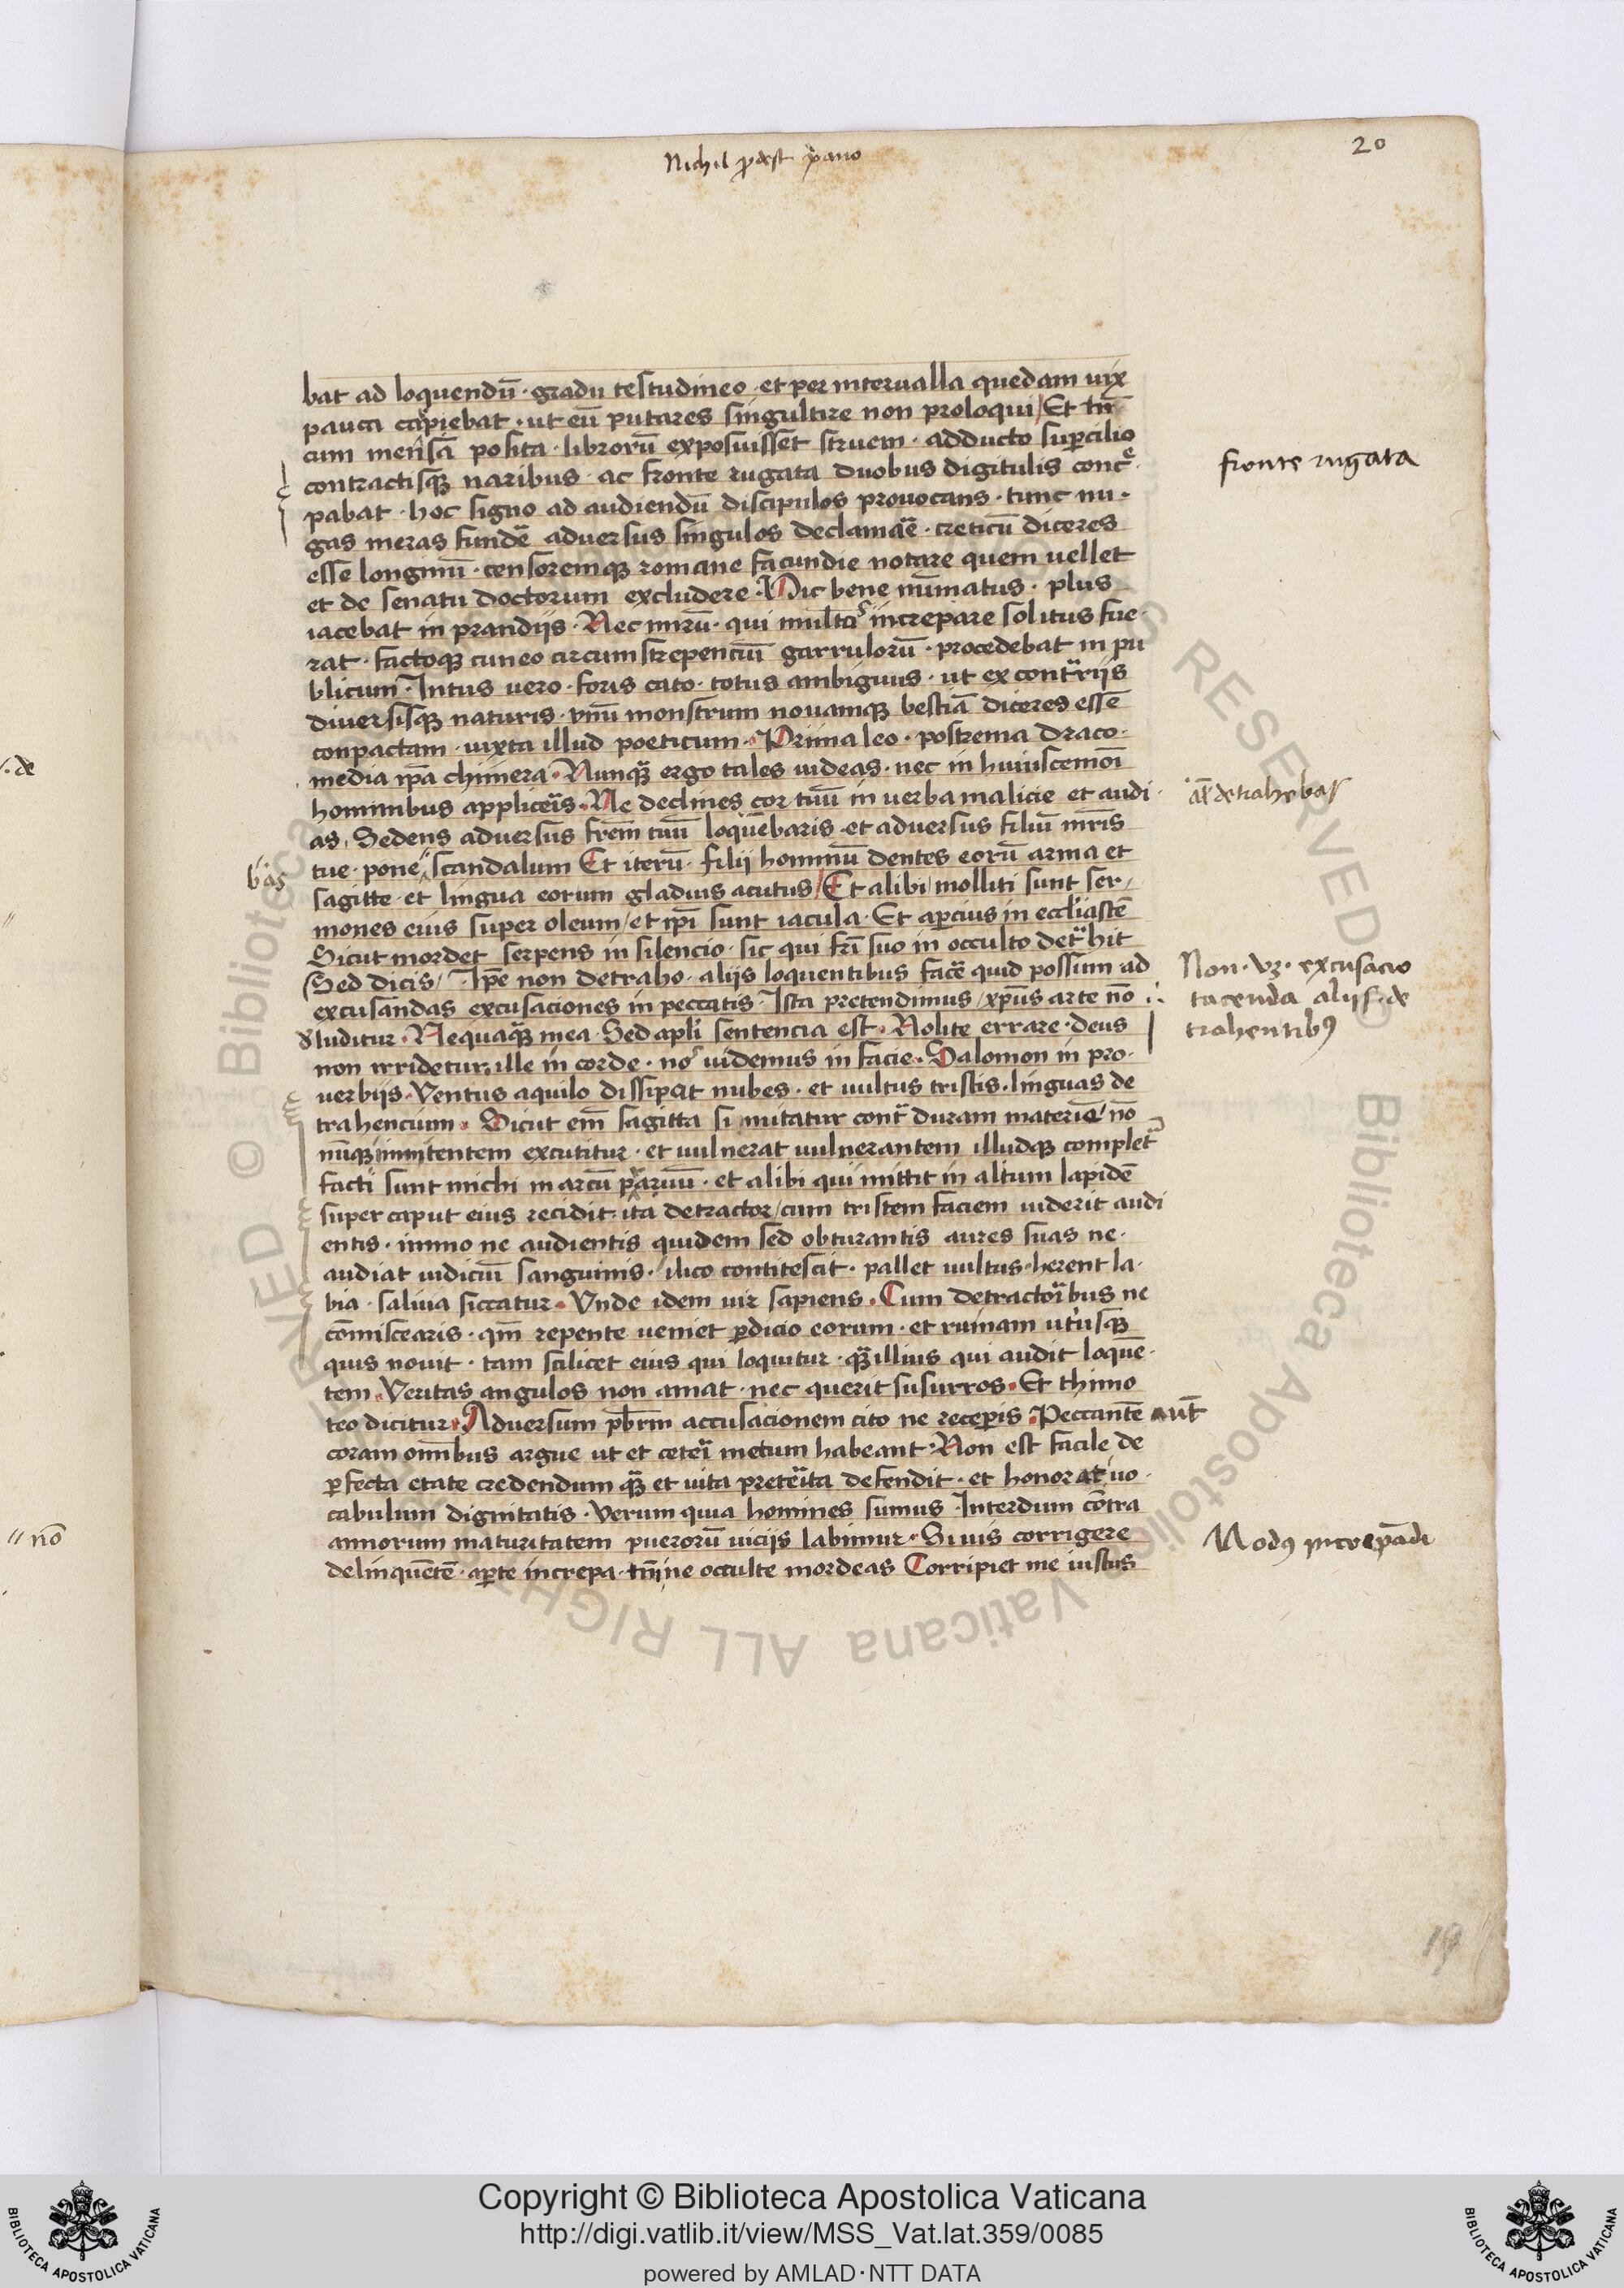 Nichil ꝓdest
20
bat ad loquendū · gradu testudineo · et per interualla quedam uix
pauca capiebat · ut eū putares singultire non proloqui / Et tn̄
cum mensā posita · librorū exposuisset struem · adducto suꝑcilio
contractisqꝫ naribus · ac fronte rugata duobus digitulis concͤ ·
fronte rugata
pabat · hoc signo ad audiendū discipulos prouocans · tunc nu ·
gas meras fundē aduersus singulos declamāe · creticū diceres
esse longinū · censoremqꝫ romane facundie notare quem uellet
et de senatu doctorum excludere · Hic bene nūmatus · plus
iacebat in prandijs · Nec mirū · qui mltos increpare solitus fue ·
rat · factoqꝫ cuneo circumstrepenciū garrulorū · procedebat in pu
blicum · Intus uero · foris cato · totus ambiguus · ut ex contrariis
diuersisqꝫ naturis · vnū monstrum nouamqꝫ bestiā diceres esse
conpactam · iuxta illud poeticum · Prima leo · postrema draco ·
media ip̄a chimera · Nunqȝ ergo tales uideas · nec in huiuscemōi
hominibus appliceris · Ne declines cor tuū in uerba malicie et audi ·
al̄ detrahebas
as · Sedens aduersus fr̄em tuū loquebaris · et aduersus filiū mr̄is
tue · pone scandalum Et iterū · filij hominū dentes eorū arma et
bas
sagitte · et lingua eorum gladius acutus / Et alibi / molliti sunt ser /
mones eius super oleum / et ip̄i sunt iacula · Et aꝑcius in eccl̄iastē
Sicut mordet serpens in silencio · sic qui fr̄i suo in occulto detrahit
Sed dicis / Ip̄e non detraho · aliis loquentibus facē quid possum ad
Non · vꝫ · excusacio
excusandas excusaciones in peccatis · Ista pretendimus / xp̄us arte nō
tacenda aliis · de
luditur · Nequaqȝ mea · Sed apl̄i sentencia est · Nolite errare · deus
trahentibꝰ
non irridetur · ille in corde · nos uidemus in facie · Salomon in pro ·
uerbijs · Ventus aquilo dissipat nubes · et uultus tristis · linguas de
trahencium · Sicut em̄ sagitta si mitatur contra duram materiā / nō
nūqꝫ in mitentem excutitur · et uulnerat uulnerantem illudqꝫ completr
facti sunt michi in arcū prauum · et alibi qui mittit in altum lapidē
super caput eius recidit · ita detractor / cum tristem faciem uiderit audi
entis · immo ne audientis quidem sed obturantis aures suas ne ·
audiat iudiciū sanguinis · ilico contitescit · pallet uultus · herent la ·
bia · saliua siccatur · Vnde idem uir sapiens · Cum detractoribus ne
cōmiscearis · qm̄ repente ueniet ꝑdicio eorum · et ruinam utriusqꝫ
quis nouit · tam scilicet eius qui loquitur · qȝ illius qui audit loquē ·
tem · Veritas angulos non amat · nec querit susurros · Et thimo
teo dicitur · Aduersum pb̄rm accusacionem cito ne receꝑis · Peccantē aut̄
coram om̄ibus argue ut et ceteri metum habeant · Non est facile de
ꝑfecta etate credendum qȝ et uita preterita defendit · et honorat uo ·
cabulum dignitatis · Verum quia homines sumus · Interdum cōtra
annorum maturitatem puerorū uicijs labimur · Si uis corrigere
Modꝰ increpādi
delinquētē · aꝑte increpa · tm̄ ne occulte mordeas Corripiet me iustus
19
. de
nō
Copyright © Biblioteca Apostolica Vaticana
http://digi.vatlib.it/view/MSS_Vat.lat.359/0085
powered by AMLAD·NTT DATA
BIBLIOTECA APOSTOLICA VATICANA
BIBLIOTECA APOSTOLICA VATICANA
© Biblioteca Apostolica Vaticana ALL RIGHTS RESERVED